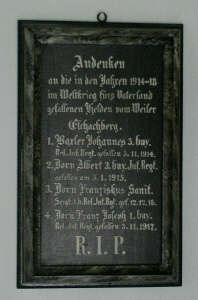 Andenken
an die in den Jahren 1914-18
im Weltkrieg fürs Vaterland
gefallenen Helden vom Weiler
Eschachberg.
1. Waxler Johannes 3. bay.
Res. Inf. Regt. gefallen 3. 11. 1914.
2. Dorn Albert 3. bay. Inf. Regt.
gefallen am 5. 1. 1915.
3. Dorn Franziskus Sanit.
Sergt. i. b. Res. Inf. Rgt. gef. 12. 12. 16.
4. Dorn Franz Joseph 1. bay.
Res. Inf. Regt. gefallen 3. 11. 1917.
R. I. P.